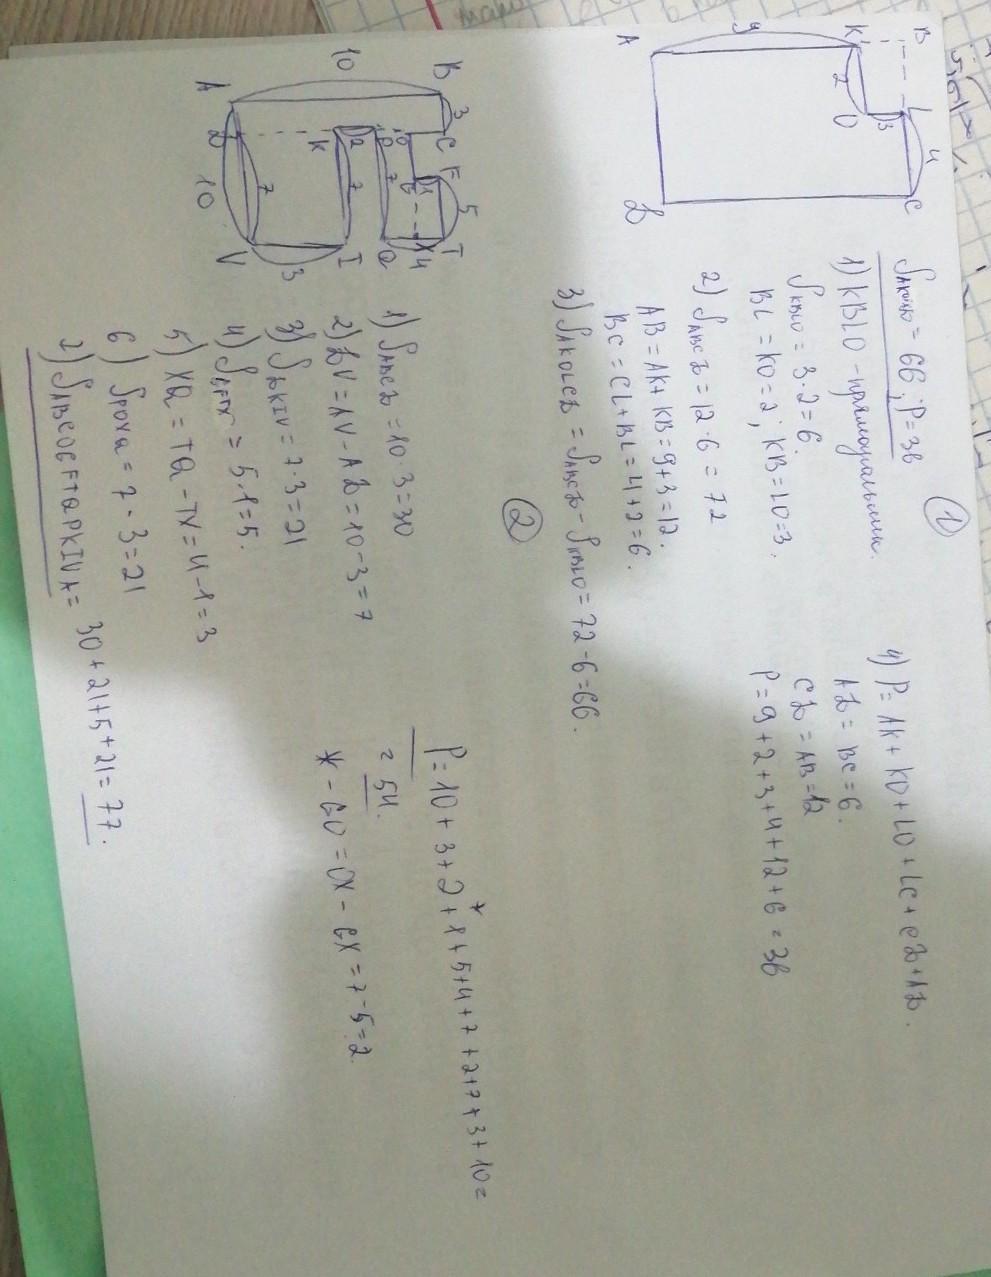 ①
A
9
K
B
2
O
3
L
4
C
D
S AKOLCD = 66; P=36
1) KBLO - прямоугольник.
S KBLO = 3·2=6.
BL = KO=2; KB=LO=3.
2) S ABCD = 12·6 = 72
AB = AK+KB=9+3=12.
BC = CL+BL=4+2=6.
3) S AKOLCD = S ABCD - S KBLO = 72-6=66.
4) P= AK+KO+LO+LC+CD+AD.
AD = BC=6.
CD = AB=12
P= 9+2+3+4+12+6 = 36
②
A
10
B
3
C
F
5
T
4
X
Q
7
P
2
K
7
I
3
V
10
7
D
1) S ABCD = 10·3=30
2) DV=AV-AD=10-3=7
3) S DKIV=7·3=21
4) S GFTX = 5·1=5.
5) XQ = TQ-TX=4-1=3
6) S POXQ = 7·3=21
7) S ABCOGFTQPKIVA = 30+21+5+21=77.
P= 10+3+2*+1+5+4+7+2+7+3+10=
= 54.
* - GO=OX-GX=7-5=2.